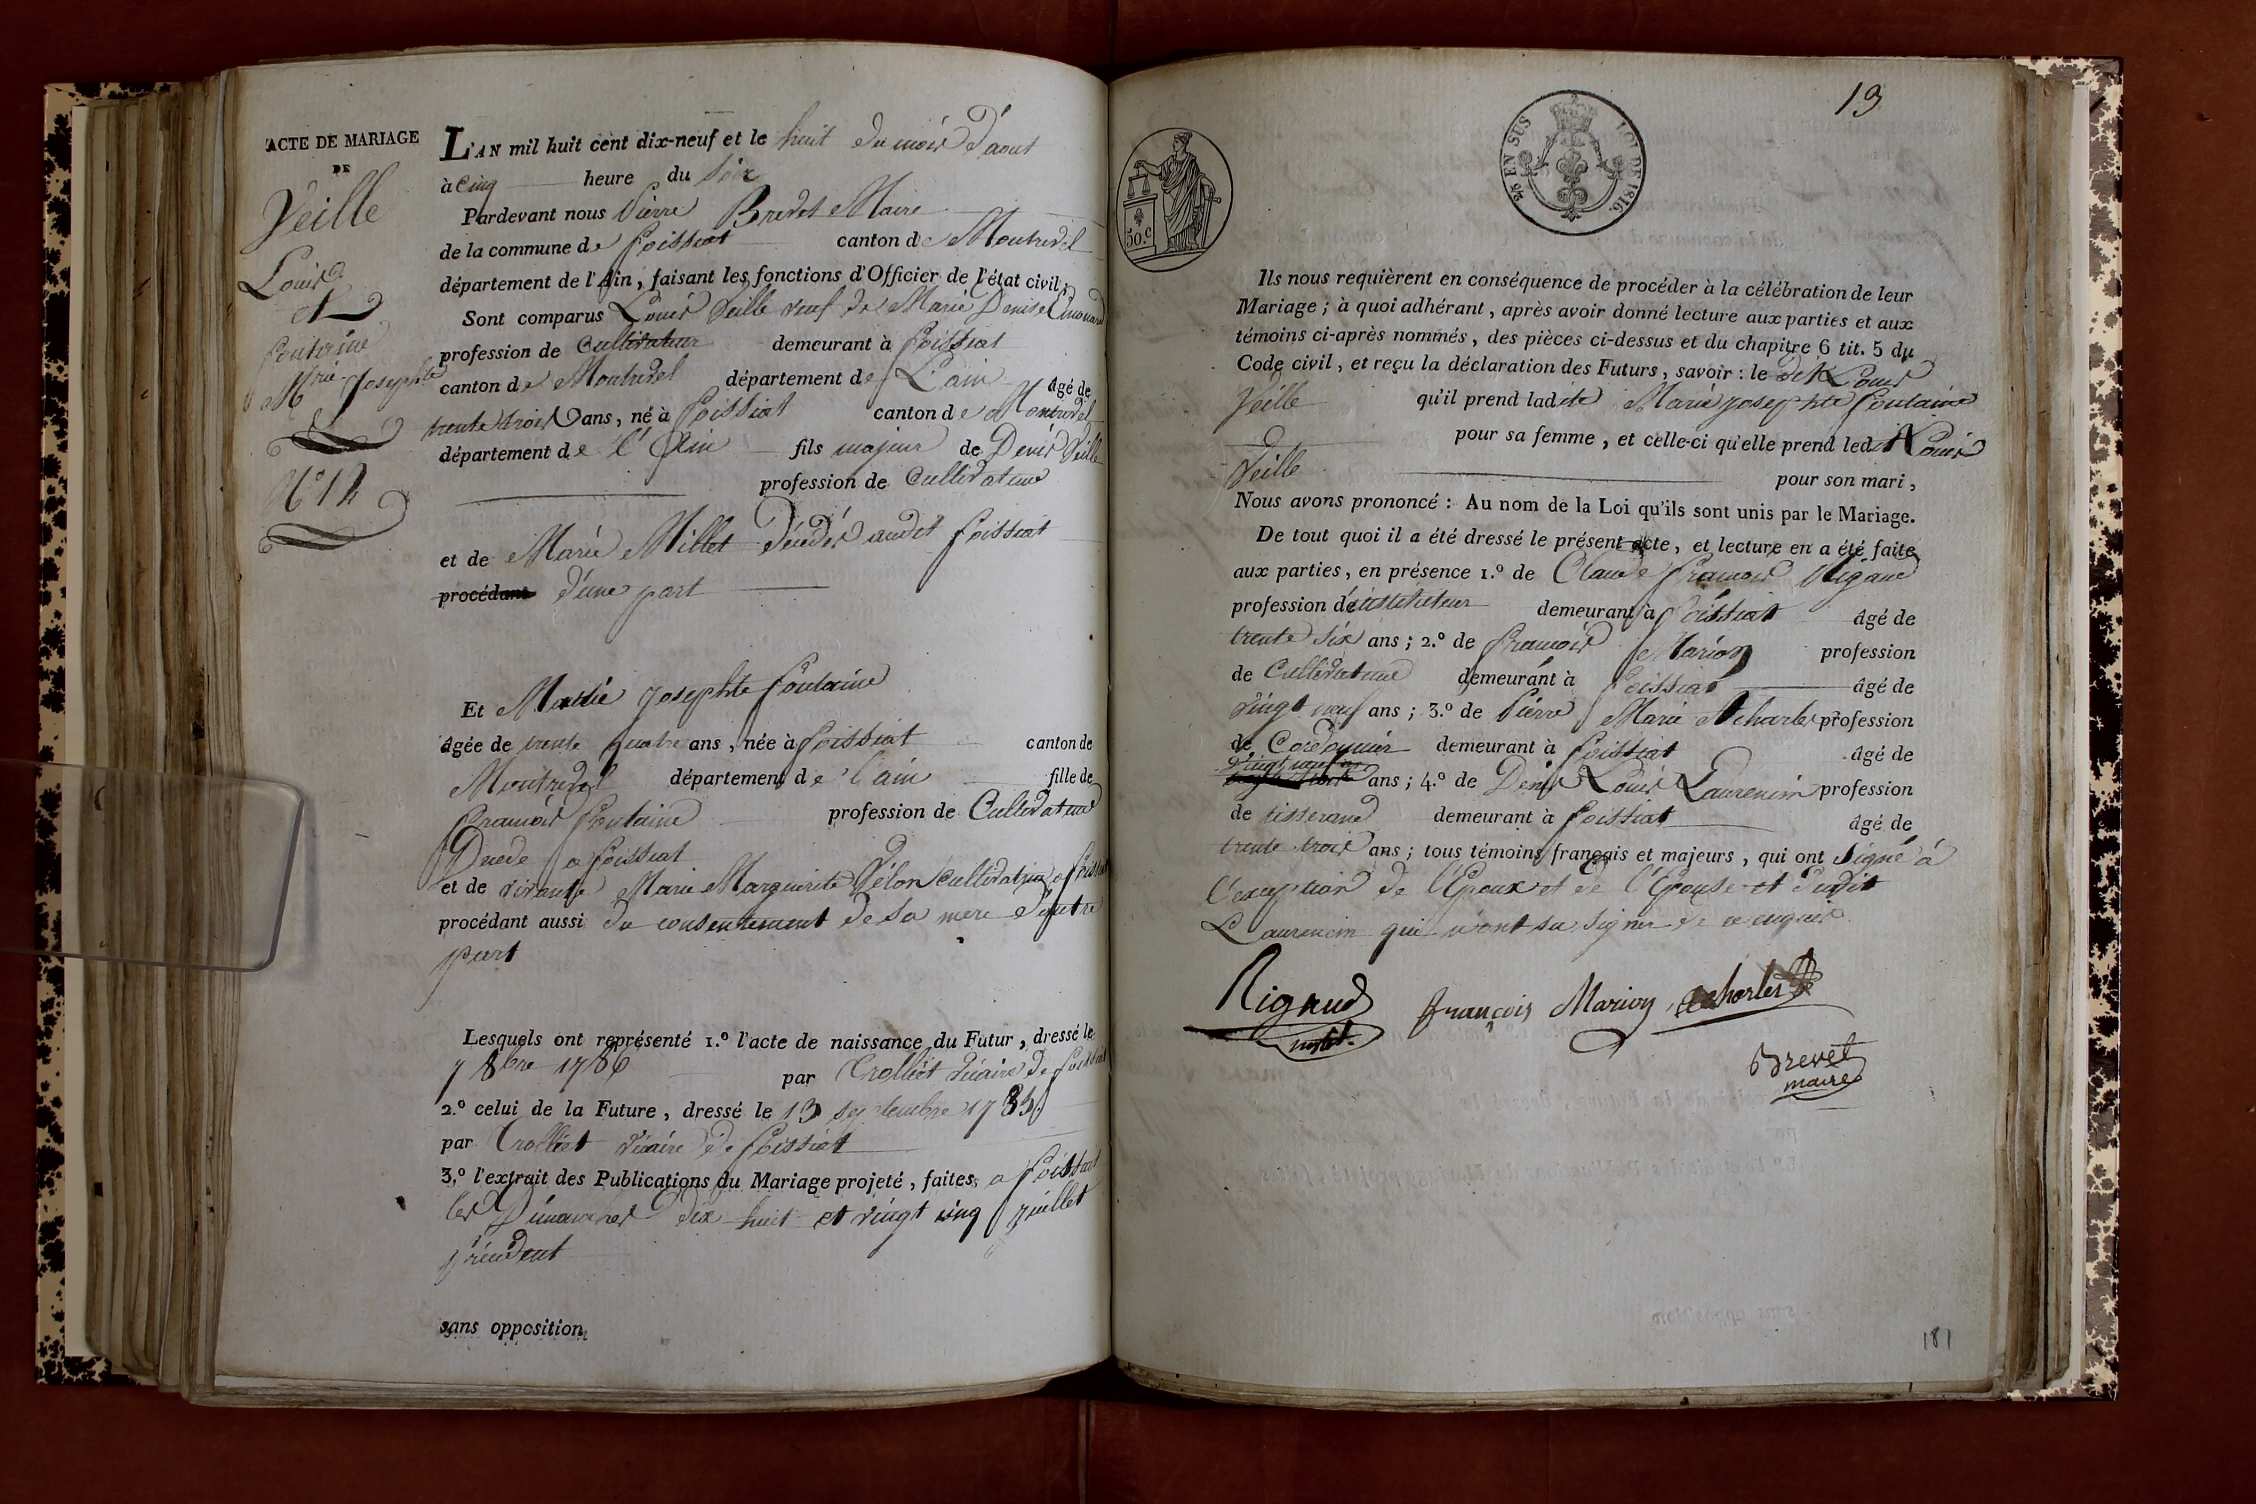 ACTE DE MARIAGE
DE
Veille
Louis
et
fontaine
Marie Josephte
N° 12
L'AN mil huit cent dix-neuf et le huit du mois d'aout
à Cinq heure du soir
Pardevant nous Pierre Brevet Maire
de la commune de foissiat canton de Montrevel
département de l'Ain, faisant les fonctions d'Officier de l'état civil,
Sont comparus Louis Veille veuf de Marie Denise
profession de Cultivateur demeurant à foissiat
canton de Montrevel département de L'ain âgé de
trente trois ans, né à foissiat canton de Montrevel
département de l'Ain fils majeur de Denis Veille
profession de Cultivateur
et de Marie Millet décédés audit foissiat
procédant d'une part
Et Marie Josephte fontaine
âgée de trente quatre ans, née à foissiat canton de
Montrevel département de l'ain fille de
francois fontaine profession de Cultivateur
a foissiat
et de vivante Marie Marguerite Pelon cultivatrice a foissiat
procédant aussi du consentement de sa mere d'autre
part
Lesquels ont représenté 1.º l'acte de naissance du Futur, dressé le
7 8bre 1786 par Crolliet vicaire de foissiat
2.º celui de la Future, dressé le 13 septembre
par Crolliet vicaire de foissiat
3.º l'extrait des Publications du Mariage projeté, faites a foissiat
les Dimanches dix huit et vingt cinq juillet
précédent
sans opposition
13
50.c
EN SUS LOI DE 1816.
Ils nous requièrent en conséquence de procéder à la célébration de leur
Mariage; à quoi adhérant, après avoir donné lecture aux parties et aux
témoins ci-après nommés, des pièces ci-dessus et du chapitre 6 tit. 5 du
Code civil, et reçu la déclaration des Futurs, savoir: le dit Louis
Veille qu'il prend ladite Marie josephte fontaine
pour sa femme, et celle-ci qu'elle prend led.t Louis
Veille pour son mari,
Nous avons prononcé: Au nom de la Loi qu'ils sont unis par le Mariage.
De tout quoi il a été dressé le présent acte, et lecture en a été faite
aux parties, en présence 1.º de Claude francois Rigaud
profession d'instituteur demeurant à foissiat âgé de
trente six ans; 2.º de francois Marion profession
de Cultivateur demeurant à foissiat âgé de
vingt neuf ans; 3.º de Pierre Marie Acharles profession
de Cordonnier demeurant à foissiat âgé de
vingt neuf ans; 4.º de Denis Louis Laurencin profession
de tisserand demeurant à foissiat âgé de
trente trois ans; tous témoins français et majeurs, qui ont signé à
l'exception de l'Epoux et de l'Epouse et dudit
Laurencin qui n'ont su signer de ce enquis
Rigaud
instit.
françois Marion
acharles
Brevet
maire
181